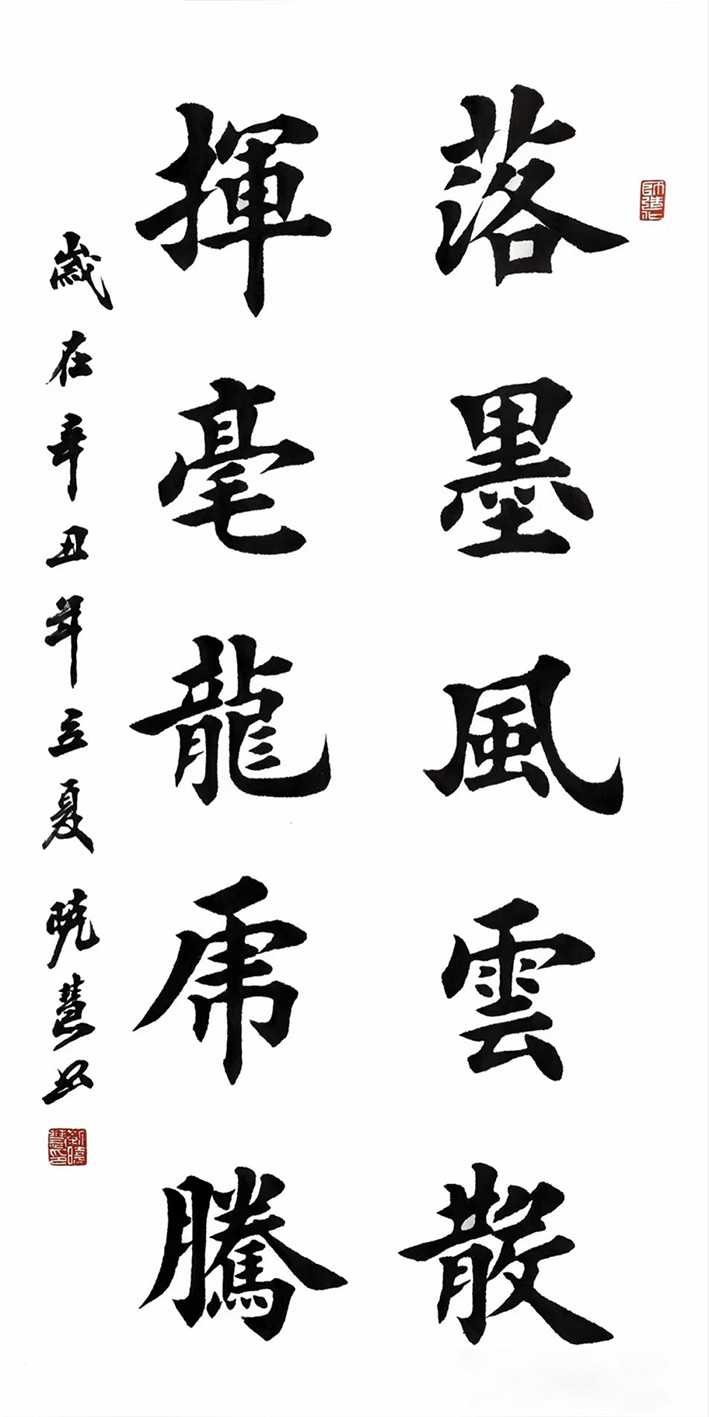 落墨風雲散
揮毫龍虎騰
歲在辛丑年立夏曉慧書
師造化